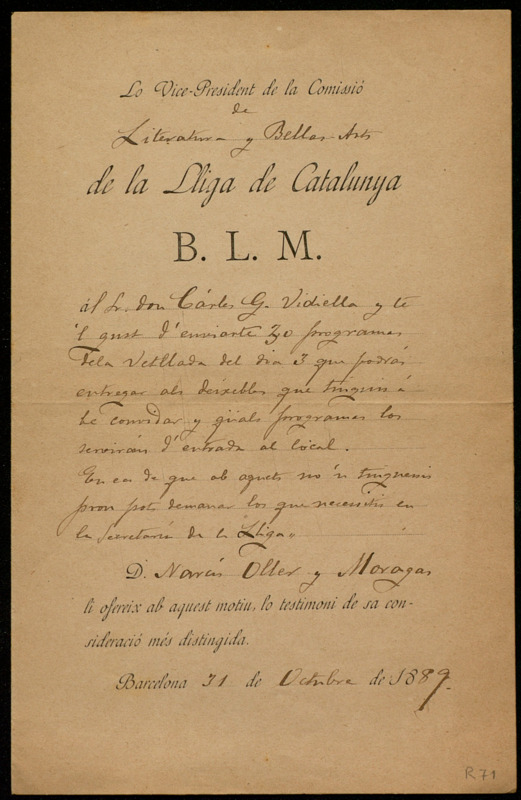 Lo Vice-President de la Comissió
de
Literatura y Bellas Arts
de la Lliga de Catalunya
B. L. M.
al Sr. don Cárles G. Vidiella y te
'l gust d'enviarte 30 programas
dela Vetllada del dia 3 que podrás
entregar als deixebles que tinguis á
be convidar y quals programas los
servirán d'entrada al local.
En cas de que ab aquets no 'n tinguessis
prou pots demanar los que necessitis en
la Secretaría de la Lliga.
D. Narcís Oller y Moragas
li ofereix ab aquest motiu, lo testimoni de sa con-
sideració més distingida.
Barcelona 31 de Octubre de 1889.
R. 71